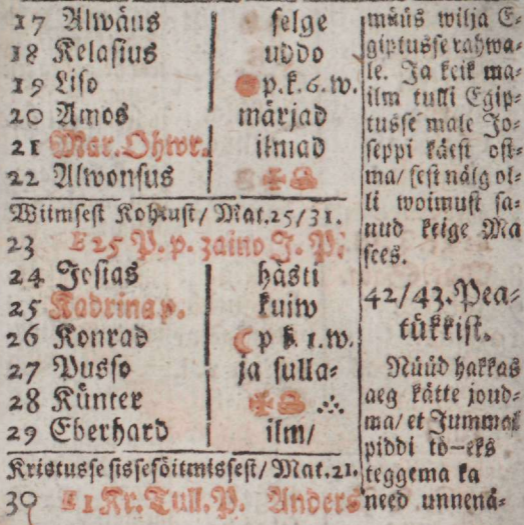 17 Alwäus selge
18 Kelasius uddo
19 Liso p.k.6.w.
20 Amos märjad
21 Mar.Ohwr. ilmad
22 Alwonsus
Wiimsest Kohtust/ Mat.25/31.
23 25 P. p. 3aino J. P.
24 Josias hästi
25 Kadrina p. kuiw
26 Konrad p 1.w.
27 Pusso ja sulla-
28 Künter
29 Eberhard ilm/
Kristusse sissesöitmissest/ Mat.21.
30 1 Kr. Tull. P. Anders
müüs wilja E-
giptusse rahwa-
le. Ja keik ma-
ilm tulli Egip-
tusse male Jo-
seppi käest ost-
ma/ sest nälg ol-
li woimust sa-
nud keige Ma
sees.
42/43. Pea-
tükkist.
Nüüd hakkas
aeg kätte joud-
ma/ et Jummal
piddi tö-eks
teggema ka
need unnenä-